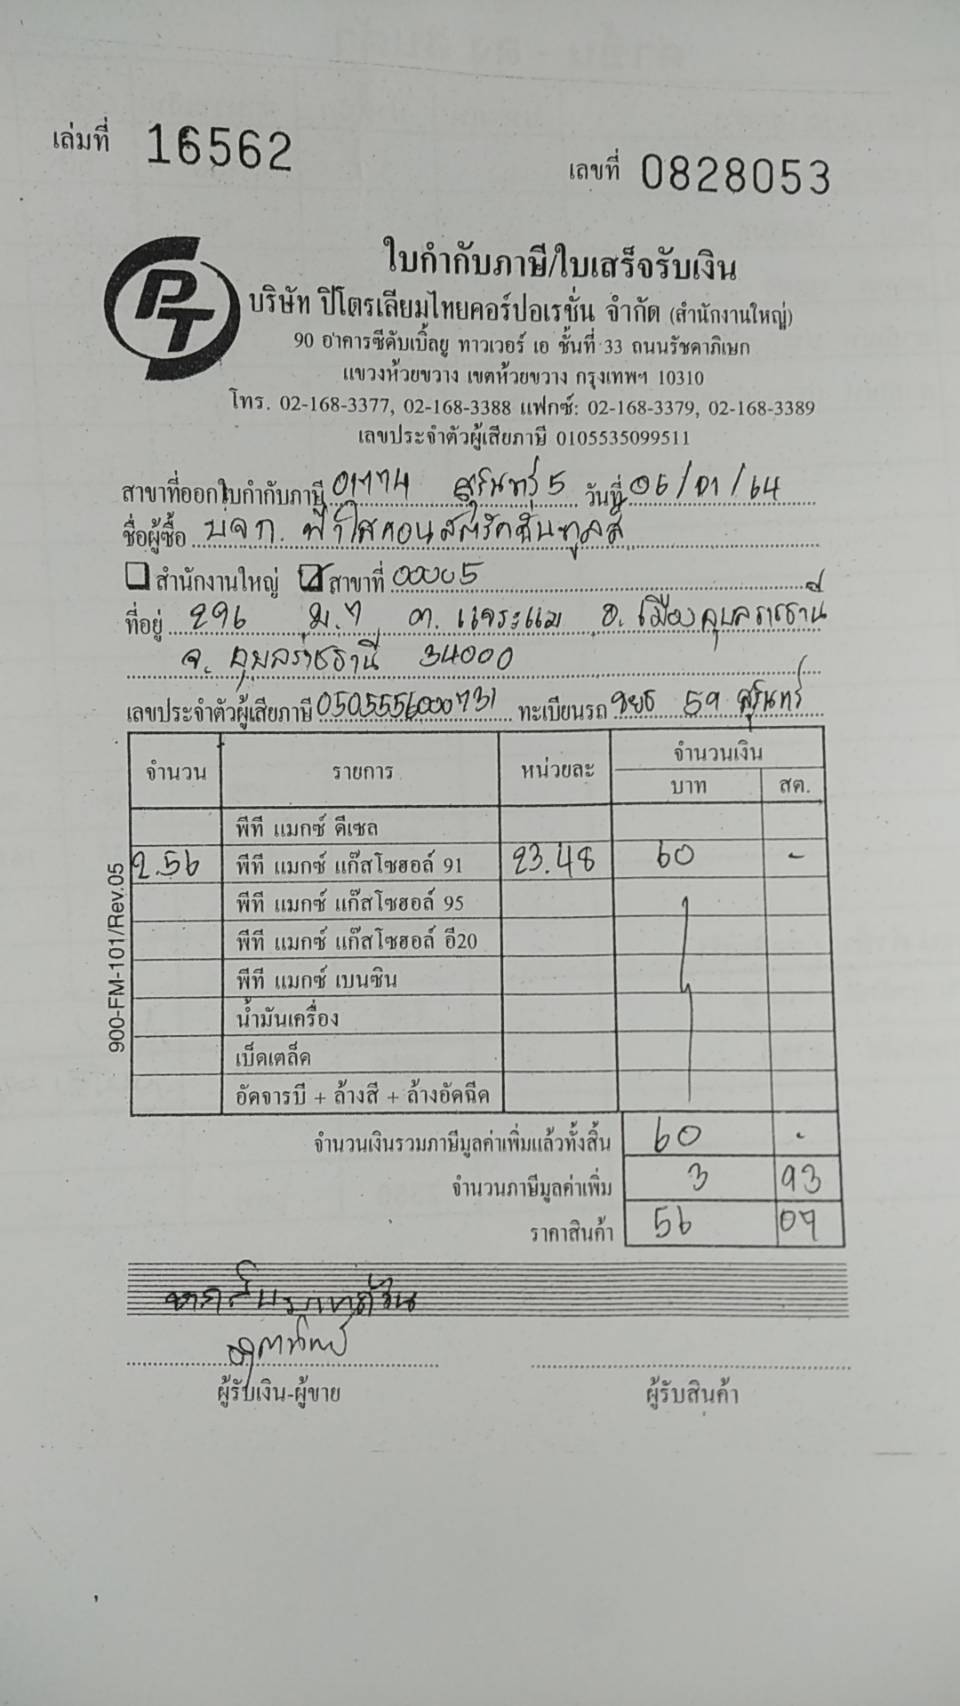 เล่มที่ 16562
เลขที่ 0828053
PT
ใบกำกับภาษี/ใบเสร็จรับเงิน
บริษัท ปิโตรเลียมไทยคอร์ปอเรชั่น จำกัด (สำนักงานใหญ่)
90 อาคารซีดับเบิ้ลยู ทาวเวอร์ เอ ชั้นที่ 33 ถนนรัชดาภิเษก
แขวงห้วยขวาง เขตห้วยขวาง กรุงเทพฯ 10310
โทร. 02-168-3377, 02-168-3388 แฟกซ์: 02-168-3379, 02-168-3389
เลขประจำตัวผู้เสียภาษี 0105535099511
สาขาที่ออกใบกำกับภาษี 01774 สุรินทร์ 5 วันที่ 06/01/64
ชื่อผู้ซื้อ บจก. ฟ้าใสคอนสตรัคชั่นทูลส์
สำนักงานใหญ่ สาขาที่ 00005
ที่อยู่ 296 ม.7 ต. แจระแม อ. เมืองอุบลราชธานี
จ. อุบลราชธานี 34000
เลขประจำตัวผู้เสียภาษี 0505556000731 ทะเบียนรถ 59 สุรินทร์
จำนวน รายการ หน่วยละ จำนวนเงิน
บาท สต.
พีที แมกซ์ ดีเซล
2.56 พีที แมกซ์ แก๊สโซฮอล์ 91 23.48 60 -
พีที แมกซ์ แก๊สโซฮอล์ 95
พีที แมกซ์ แก๊สโซฮอล์ อี20
พีที แมกซ์ เบนซิน
น้ำมันเครื่อง
เบ็ดเตล็ด
อัดจารบี + ล้างสี + ล้างอัดฉีด
จำนวนเงินรวมภาษีมูลค่าเพิ่มแล้วทั้งสิ้น 60 -
จำนวนภาษีมูลค่าเพิ่ม 3 93
ราคาสินค้า 56 07
หกสิบบาทถ้วน
ผู้รับเงิน-ผู้ขาย
ผู้รับสินค้า
900-FM-101/Rev.05